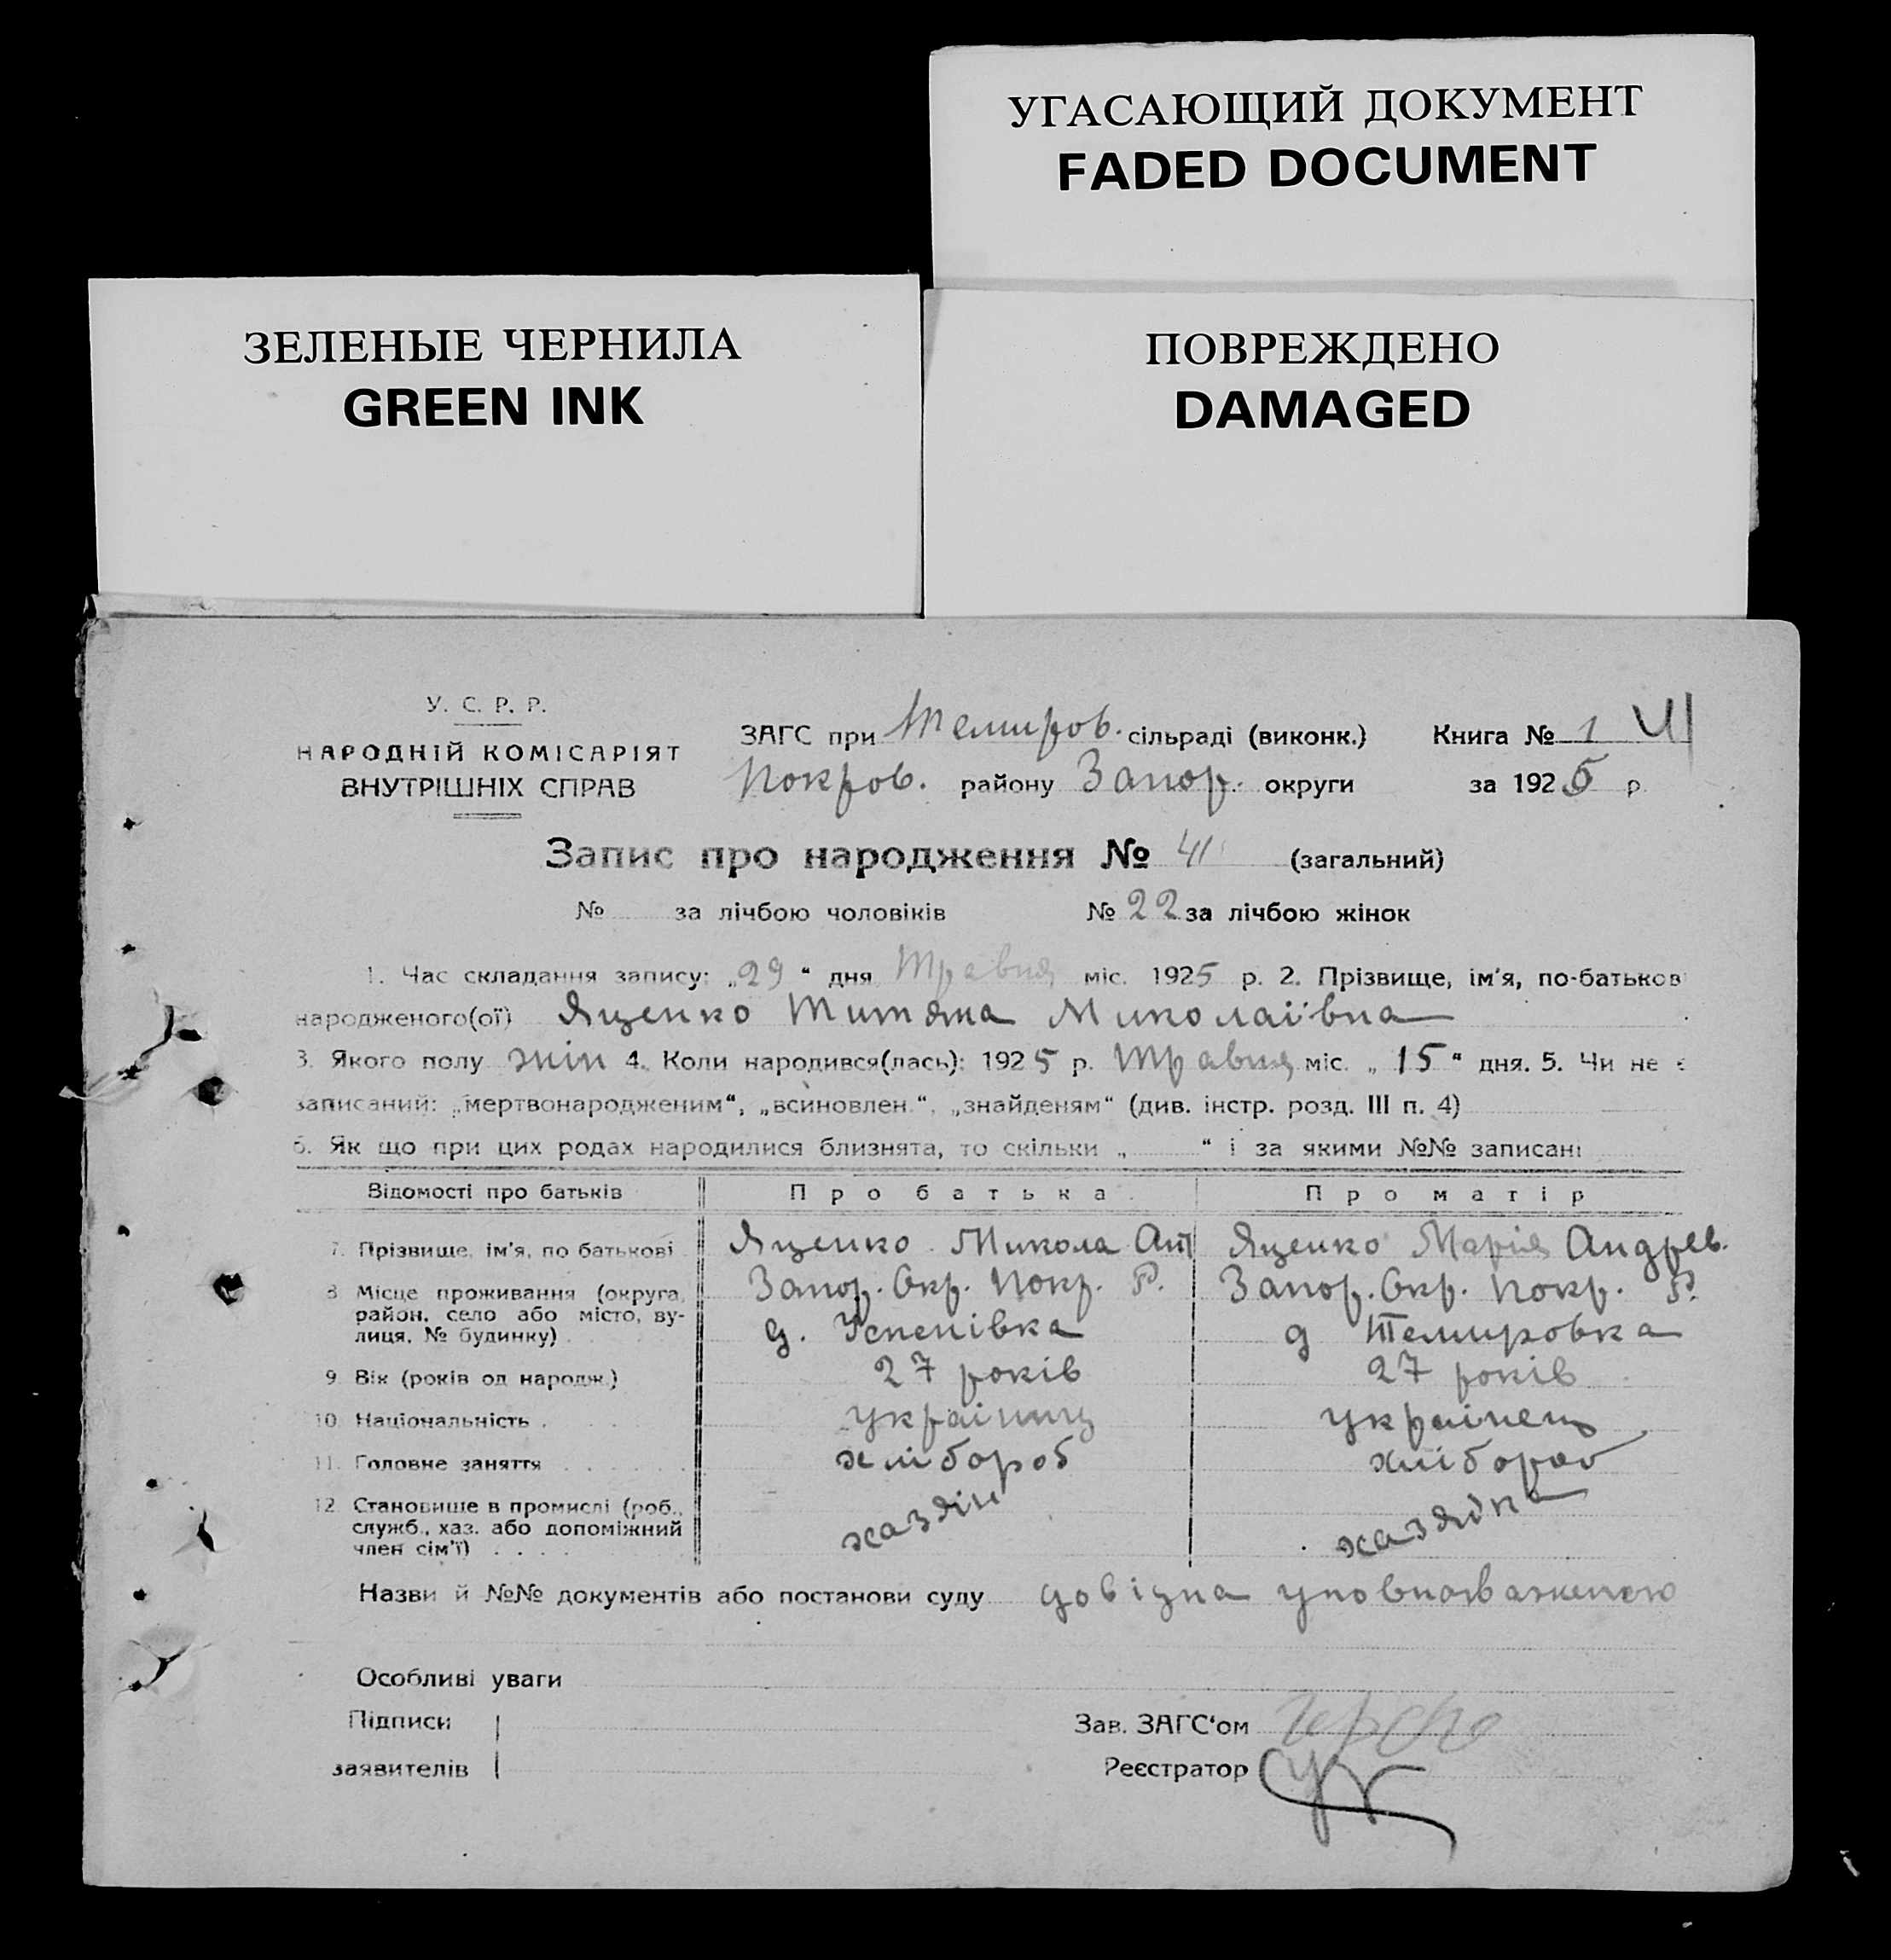 УГАСАЮЩИЙ ДОКУМЕНТ
FADED DOCUMENT
ЗЕЛЕНЫЕ ЧЕРНИЛА
GREEN INK
ПОВРЕЖДЕНО
DAMAGED
У. С. Р. Р.
НАРОДНІЙ КОМІСАРІЯТ
ВНУТРІШНІХ СПРАВ
ЗАГС при Темиров. сільраді (виконк.)
Покров. району Запор. округи
Книга № 1
за 1925 р.
Запис про народження № 41 (загальний)
№ за лічбою чоловіків № 22 за лічбою жінок
1. Час складання запису: „29“ дня Травня міс. 1925 р. 2. Прізвище, ім'я, по-батьков
народженого(ої) Яценко Титяна Миколаівна
3. Якого полу жін 4. Коли народився(лась): 1925 р. Травня міс. „15“ дня. 5. Чи не є
записаний: „мертвонародженим“, „всиновлен.“, „знайденям“ (див. інстр. розд. III п. 4)
6. Як що при цих родах народилися близнята, то скільки „ “ і за якими №№ записані
Відомості про батьків Про батька Про матір
7. Прізвище, ім'я, по батькові Яценко Микола Ант Яценко Марія Андрев.
8 Місце проживання (округа, Запор. Окр. Покр. Р. Запор. Окр. Покр. Р.
район, село або місто, ву-
лиця, № будинку) д. Успенівка д Темировка
9 Вік (років од народж.) 27 років 27 років
10 Національність . украінец украінец
11. Головне заняття хлібороб хлібороб
12. Становище в промислі (роб., хазяін хазяйка
служб., хаз. або допоміжний
член сім'ї) . . . .
Назви й №№ документів або постанови суду довідка уповноваженого
Особливі уваги
Підписи
заявителів
Зав. ЗАГС'ом
Реєстратор